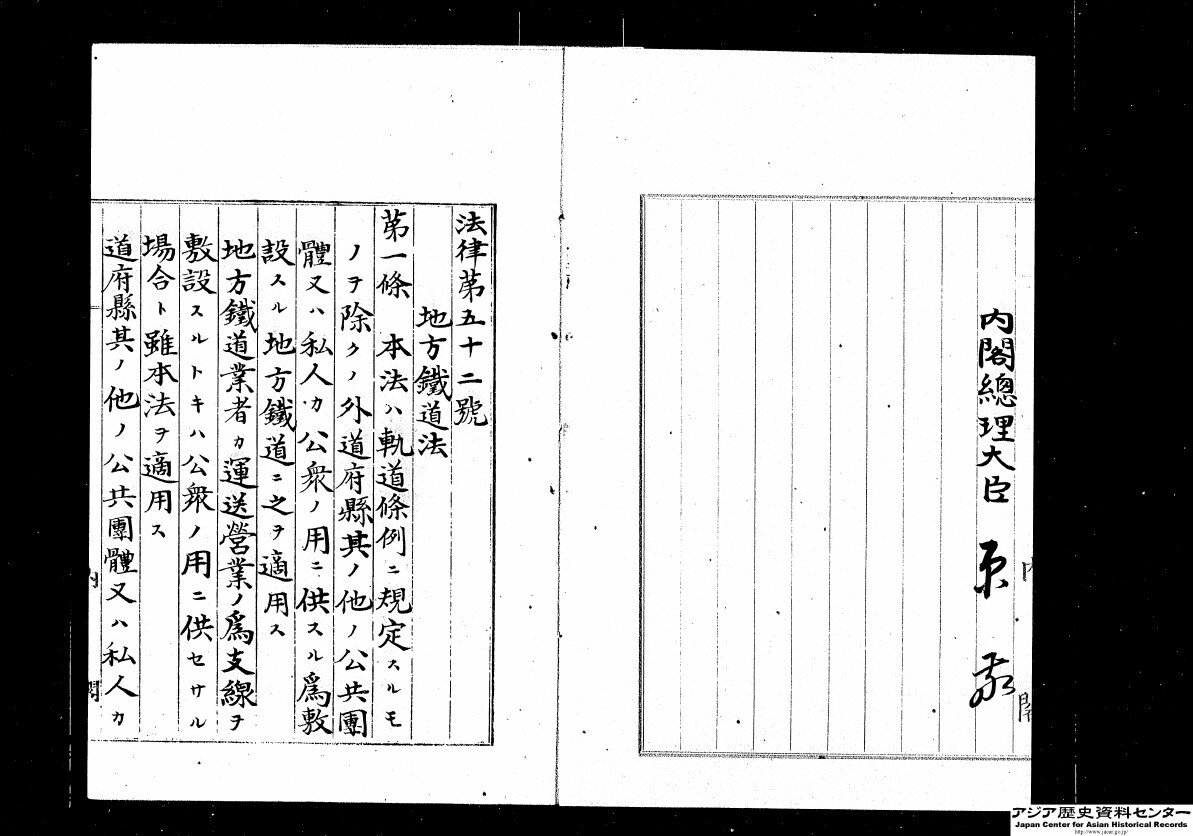 内閣總理大臣 原敬
内閣
法律第五十二號
地方鐵道法
第一條 本法ハ軌道條例ニ規定スルモ
ノヲ除クノ外道府縣其ノ他ノ公共團
體又ハ私人カ公衆ノ用ニ供スル爲敷
設スル地方鐵道ニ之ヲ適用ス
地方鐵道業者カ運送營業ノ爲支線ヲ
敷設スルトキハ公衆ノ用ニ供セサル
場合ト雖本法ヲ適用ス
道府縣其ノ他ノ公共團體又ハ私人カ
内閣
アジア歴史資料センター
Japan Center for Asian Historical Records
http://www.jacar.go.jp/